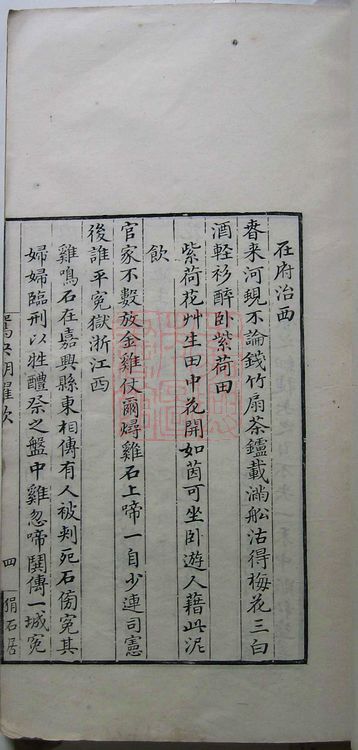 在府治西
春来河蜆不論錢竹扇茶鑪載滿船沽得梅花三白
酒軽衫醉卧紫荷田
紫荷花艸生田中花開如茵可坐卧遊人藉此泥
飲
官家不數放金雞仗爾燖雞石上啼一自少連司憲
後誰平冤獄浙江西
雞鳴石在嘉興縣東相傳有人被判死石傍冤其
婦婦臨刑以牲醴祭之盤中雞忽啼鬨傳一城冤
四
狷石居